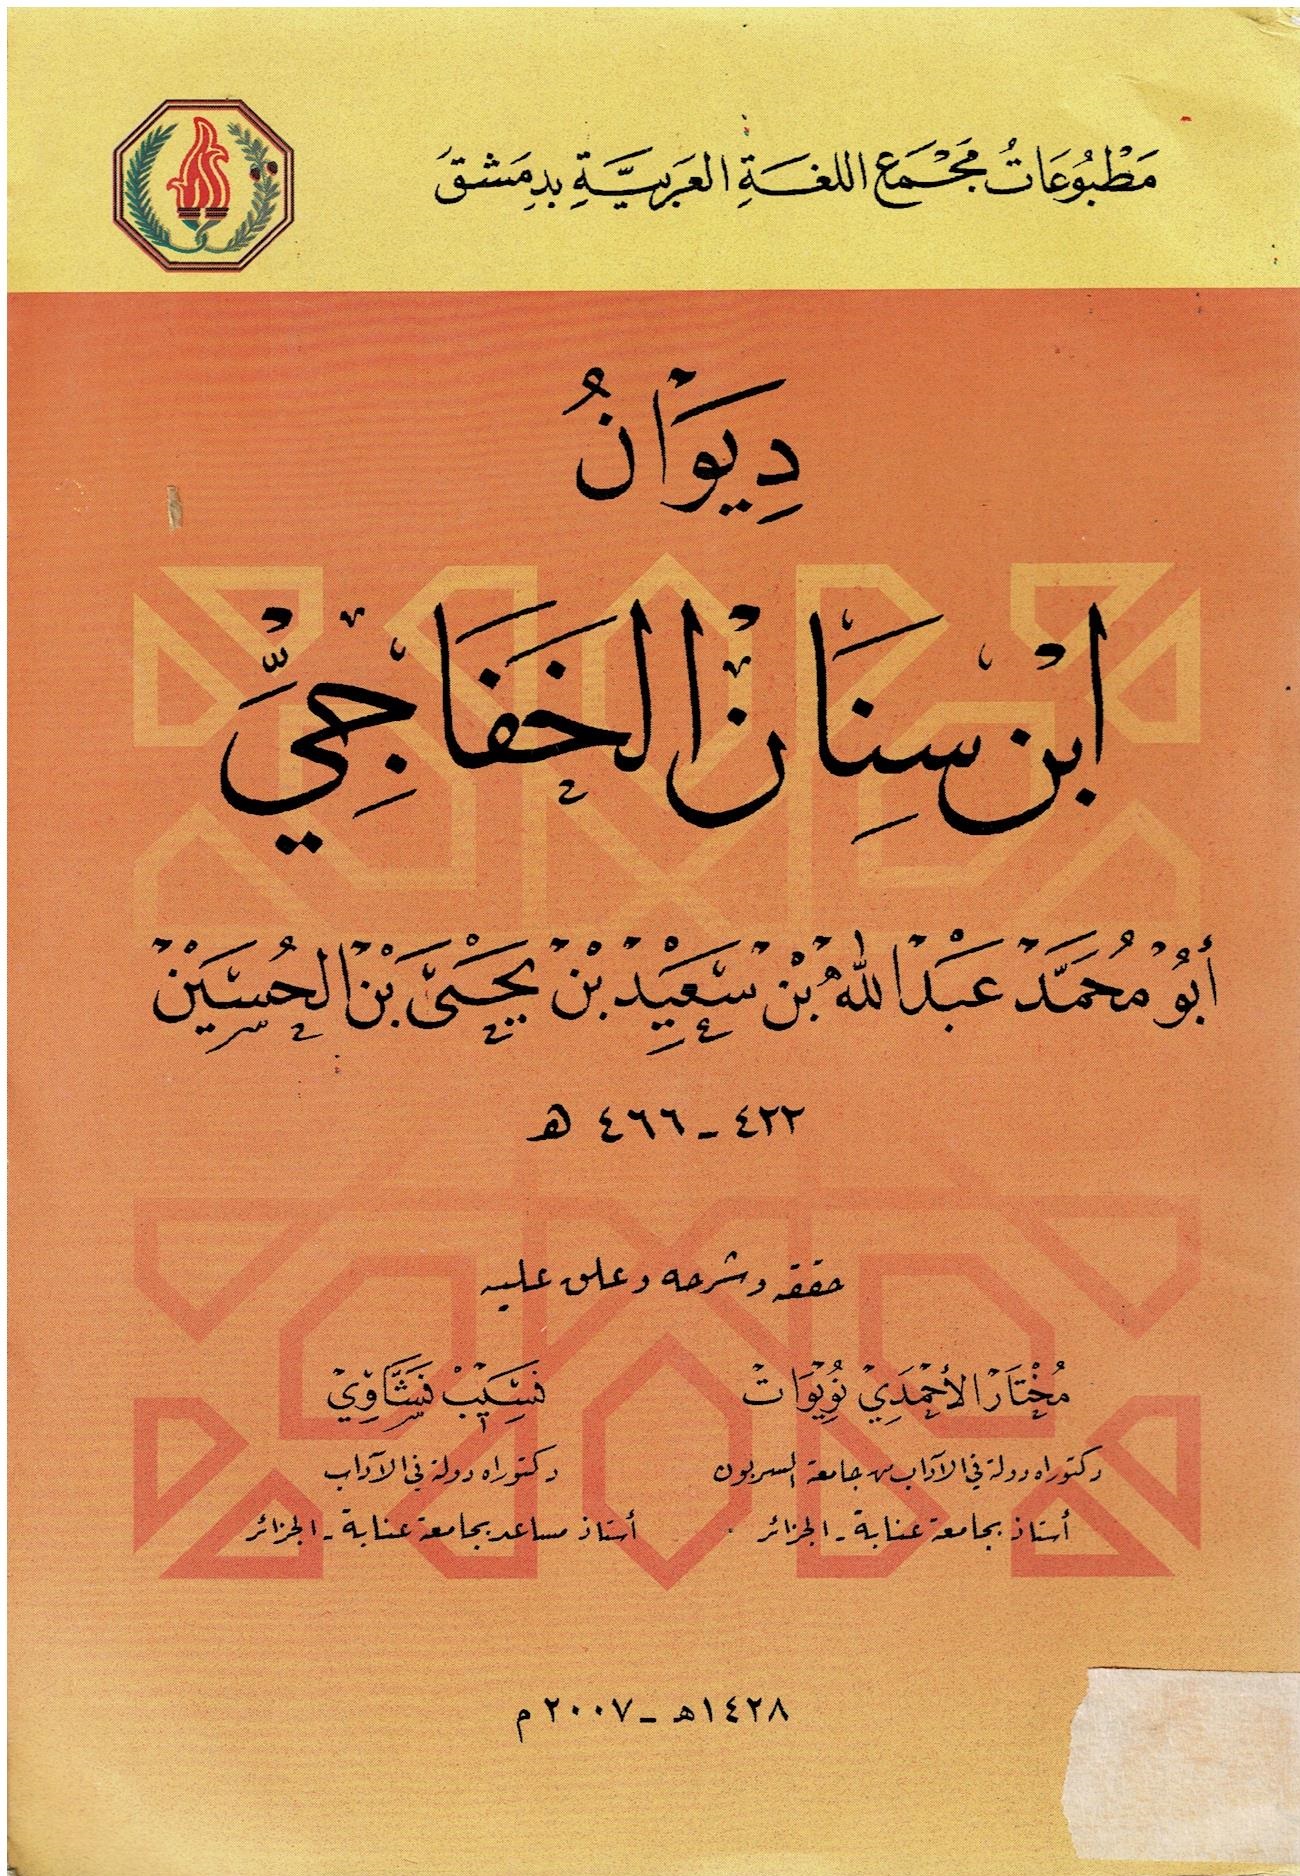 مَطْبُوعَاتُ مَجْمَعِ اللغَةِ العَرَبيَّةِ بدِمَشقَ
دِيَوانُ
ابن سِنَان الخَفَاجِيّ
أبُو مُحَمَّد عَبْد اللّٰه بْن سَعِيْد بْن يَحْيَىٰ بْن الحُسَيْن
٤٢٢ - ٤٦٦ هـ
حققه وشرحه وعلق عليه
مُخْتَار الأحْمَدِي نُوِيْوَات
دكتوراه دولة في الآداب من جامعة السربون
أستاذ بجامعة عنابة - الجزائر
نَسِيْب نَشَّاوِي
دكتوراه دولة في الآداب
أستاذ مساعد بجامعة عنابة - الجزائر
١٤٢٨هـ - ٢٠٠٧م